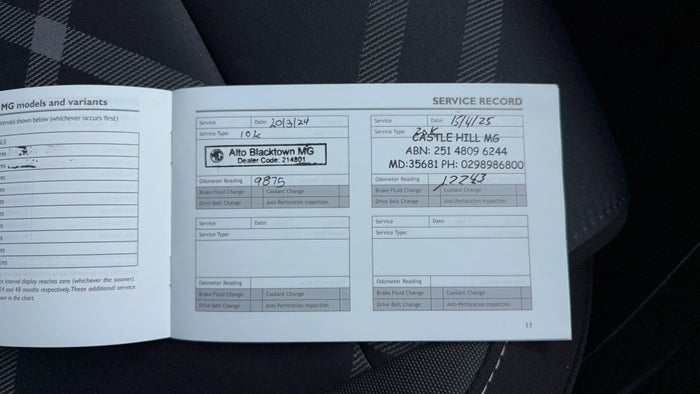 MG models and variants
ntervals shown below (whichever occurs first)
SERVICE RECORD
Service Date: 20/3/24
Service Type: 10k
Alto Blacktown MG
Dealer Code: 214801
Odometer Reading 9875
Brake Fluid Change Coolant Change
Drive Belt Change Anti-Perforation Inspection
Service Date: 15/4/25
Service Type: 20K
CASTLE HILL MG
ABN: 251 4809 6244
MD:35681 PH: 0298986800
Odometer Reading 12743
Brake Fluid Change Coolant Change
Drive Belt Change Anti-Perforation Inspection
Service Date:
Service Type:
Odometer Reading
Brake Fluid Change Coolant Change
Drive Belt Change Anti-Perforation Inspection
Service Date:
Service Type:
Odometer Reading
Brake Fluid Change Coolant Change
Drive Belt Change Anti-Perforation Inspection
interval display reaches zero (whichever the sooner)
24 and 48 months respectively. These additional service
own in the chart.
11